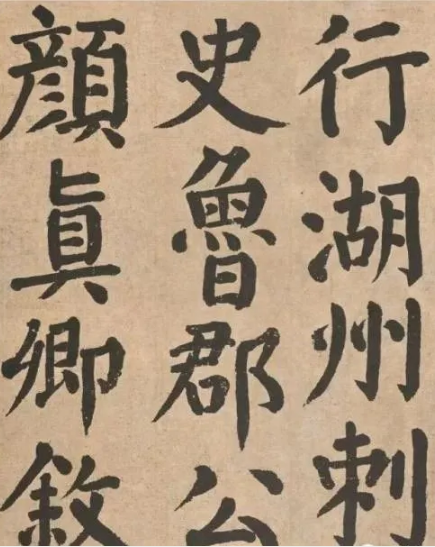 行湖州刺
史魯郡公
顔真卿敘